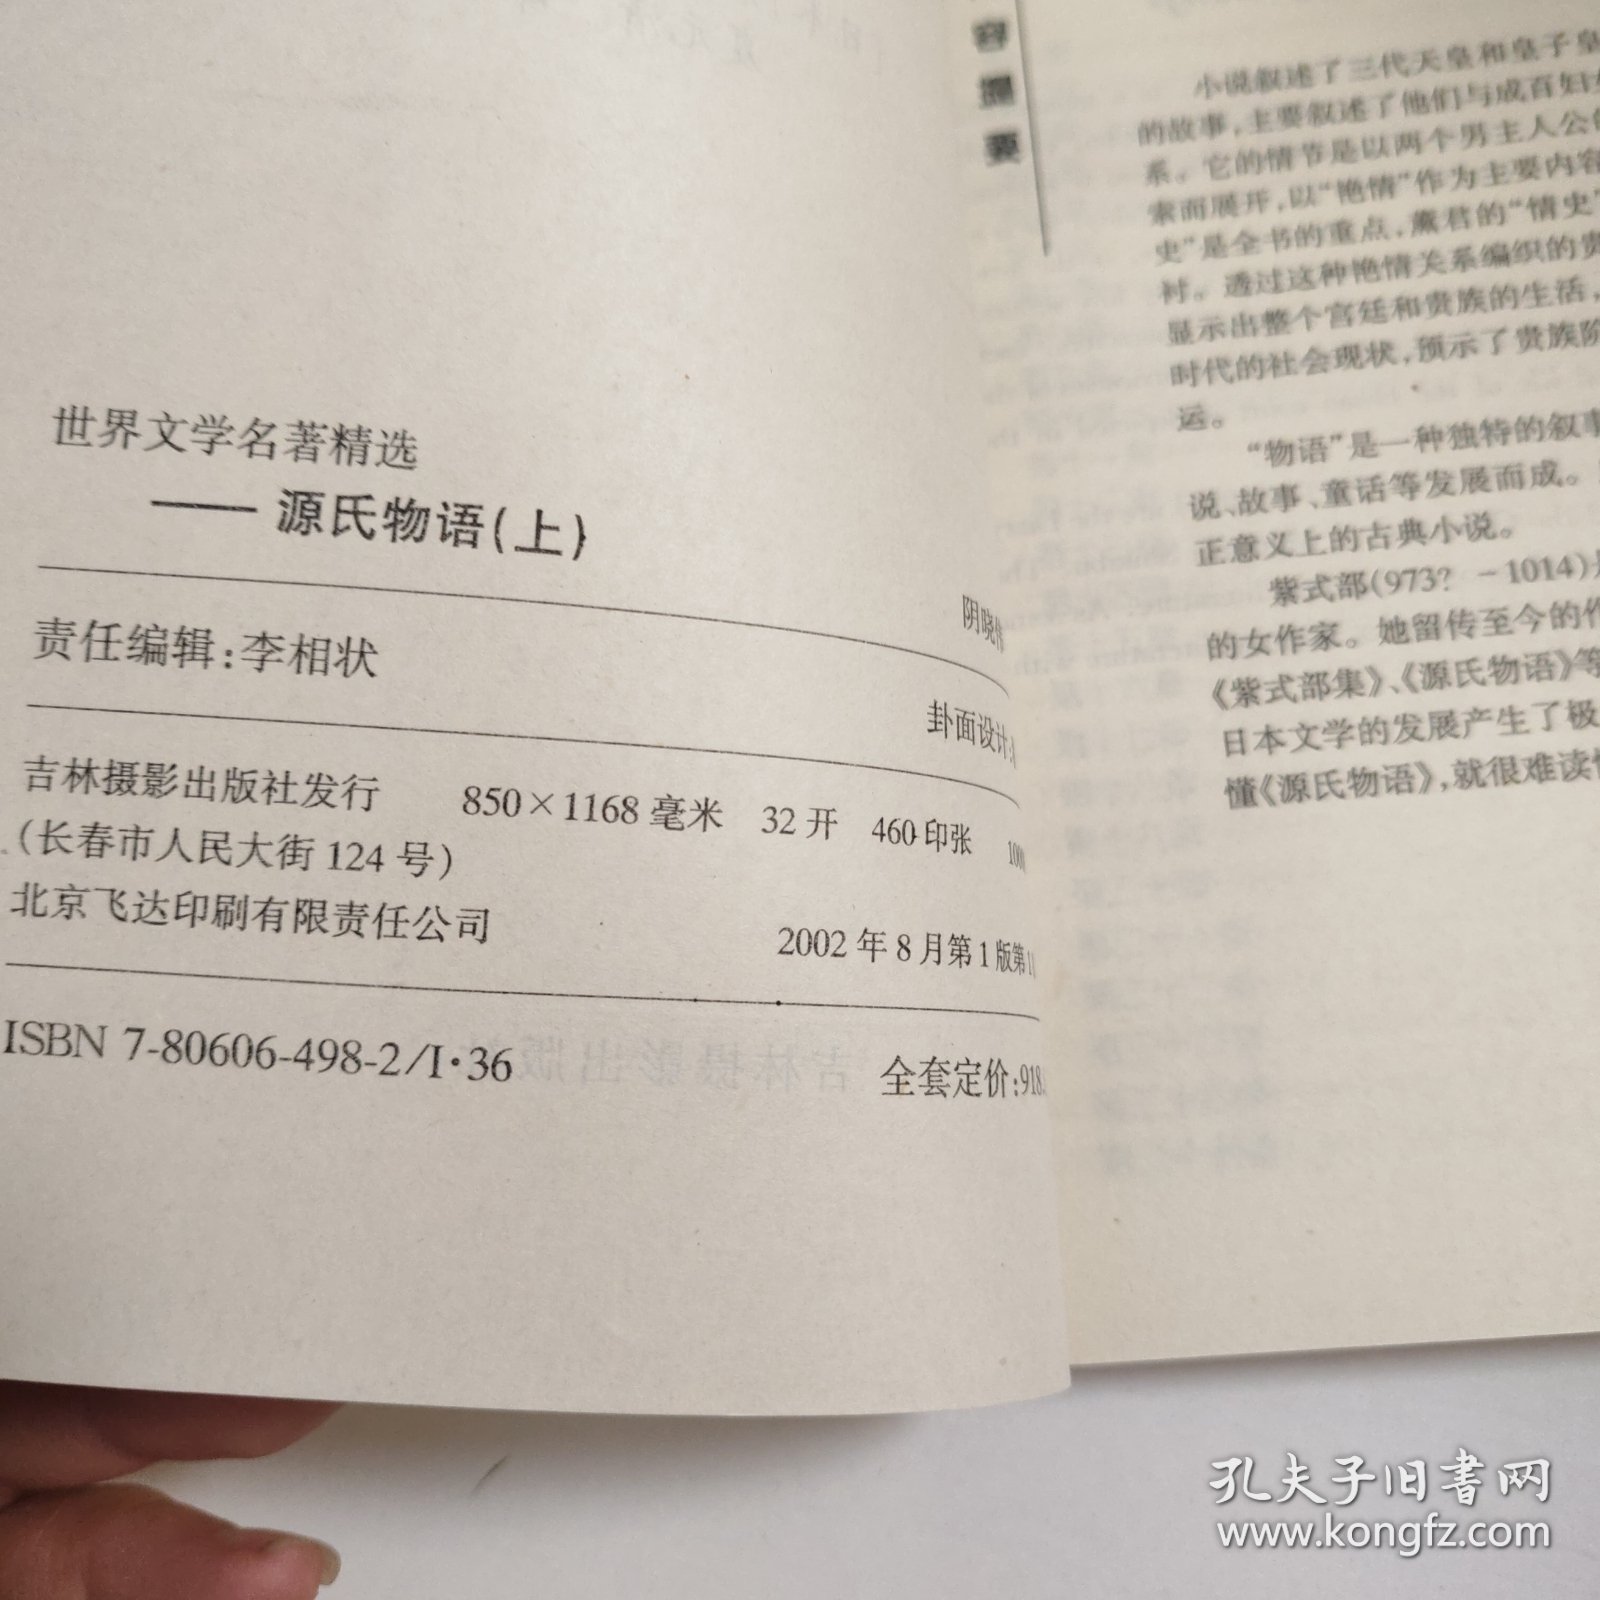 世界文学名著精选
——源氏物语(上)
阴晓
责任编辑:李相状
卦面设计:
吉林摄影出版社发行 850×1168毫米 32开 460印张
(长春市人民大街124号)
北京飞达印刷有限责任公司
2002年8月第1版第1
ISBN 7-80606-498-2/I·36
全套定价:918.
容提要
小说叙述了三代天皇和皇子皇
的故事,主要叙述了他们与成百妇
系。它的情节是以两个男主人公
索而展开,以“艳情”作为主要内容
史”是全书的重点,薰君的“情史”
衬。透过这种艳情关系编织的贵
显示出整个宫廷和贵族的生活,
时代的社会现状,预示了贵族阶
运。
“物语”是一种独特的叙事
说、故事、童话等发展而成。
正意义上的古典小说。
紫式部(973? -1014)是
的女作家。她留传至今的作
《紫式部集》、《源氏物语》等
日本文学的发展产生了极
懂《源氏物语》,就很难读
孔夫子旧书网
www.kongfz.com